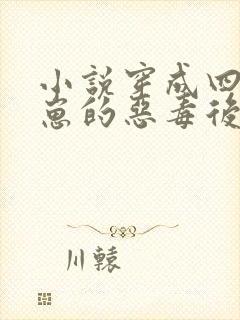 小說穿成四
崽的惡毒後
川轅